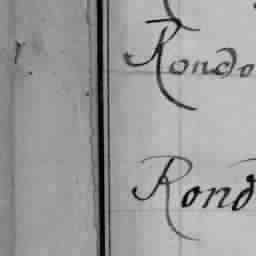 Rondo
Rond